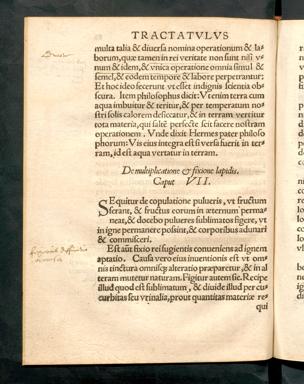 TRACTATVLVS
multa talia & diuersa nomina operationum & la-
borum, quæ tamen in rei veritate non sunt nisi v-
num & idem, & vnica operatione omnia simul &
semel, & eodem tempore & labore perpetrantur:
Et hoc ideo fecerunt vt esset indignis scientia ob-
scura. Item philosophus dicit: Vtenim terra cum
aqua imbuitur & teritur, & per temperatum no-
stri solis calorem desiccatur, & in terram vertitur
tota materia, qui salse perfecte scit facere nostram
operationem. Vnde dixit Hermes pater philoso
phorum: Vis eius integra est si versa fuerit in ter-
ram, id est aqua vertatur in terram.
De multiplicatione & fixione lapidis.
Caput VII.
SEquitur de copulatione pulueris, vt fructum
ferant, & fructus eorum in æternum perma
neat, & docebo pulueres sublimatos figere, vt
in igne permanere possint, & corporibus adunari
& commisceri.
Est aūt fixio rei fugientis conueniens ad ignem
aptatio. Causa vero eius inuentionis est vt om-
nis tinctura omnisq; alteratio præparetur, & in al
teram mutetur naturam. Figitur autem sic. Recipe
illud quod est sublimatum, & diuide illud per cu-
curbitas seu vrinalia, prout quantitas materiæ re-
qui